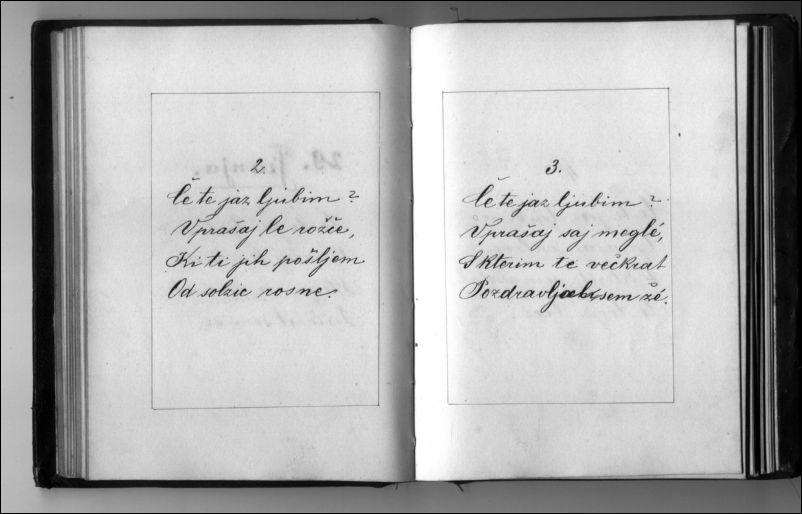 2.
Če te jaz ljubim?
Vprašaj le rožce,
Ki ti jih pošljem
Od solzic rosne.
3.
Če te jaz ljubim?
Vprašaj saj meglé,
S kterim te večkrat
Pozdravljal sem žé.